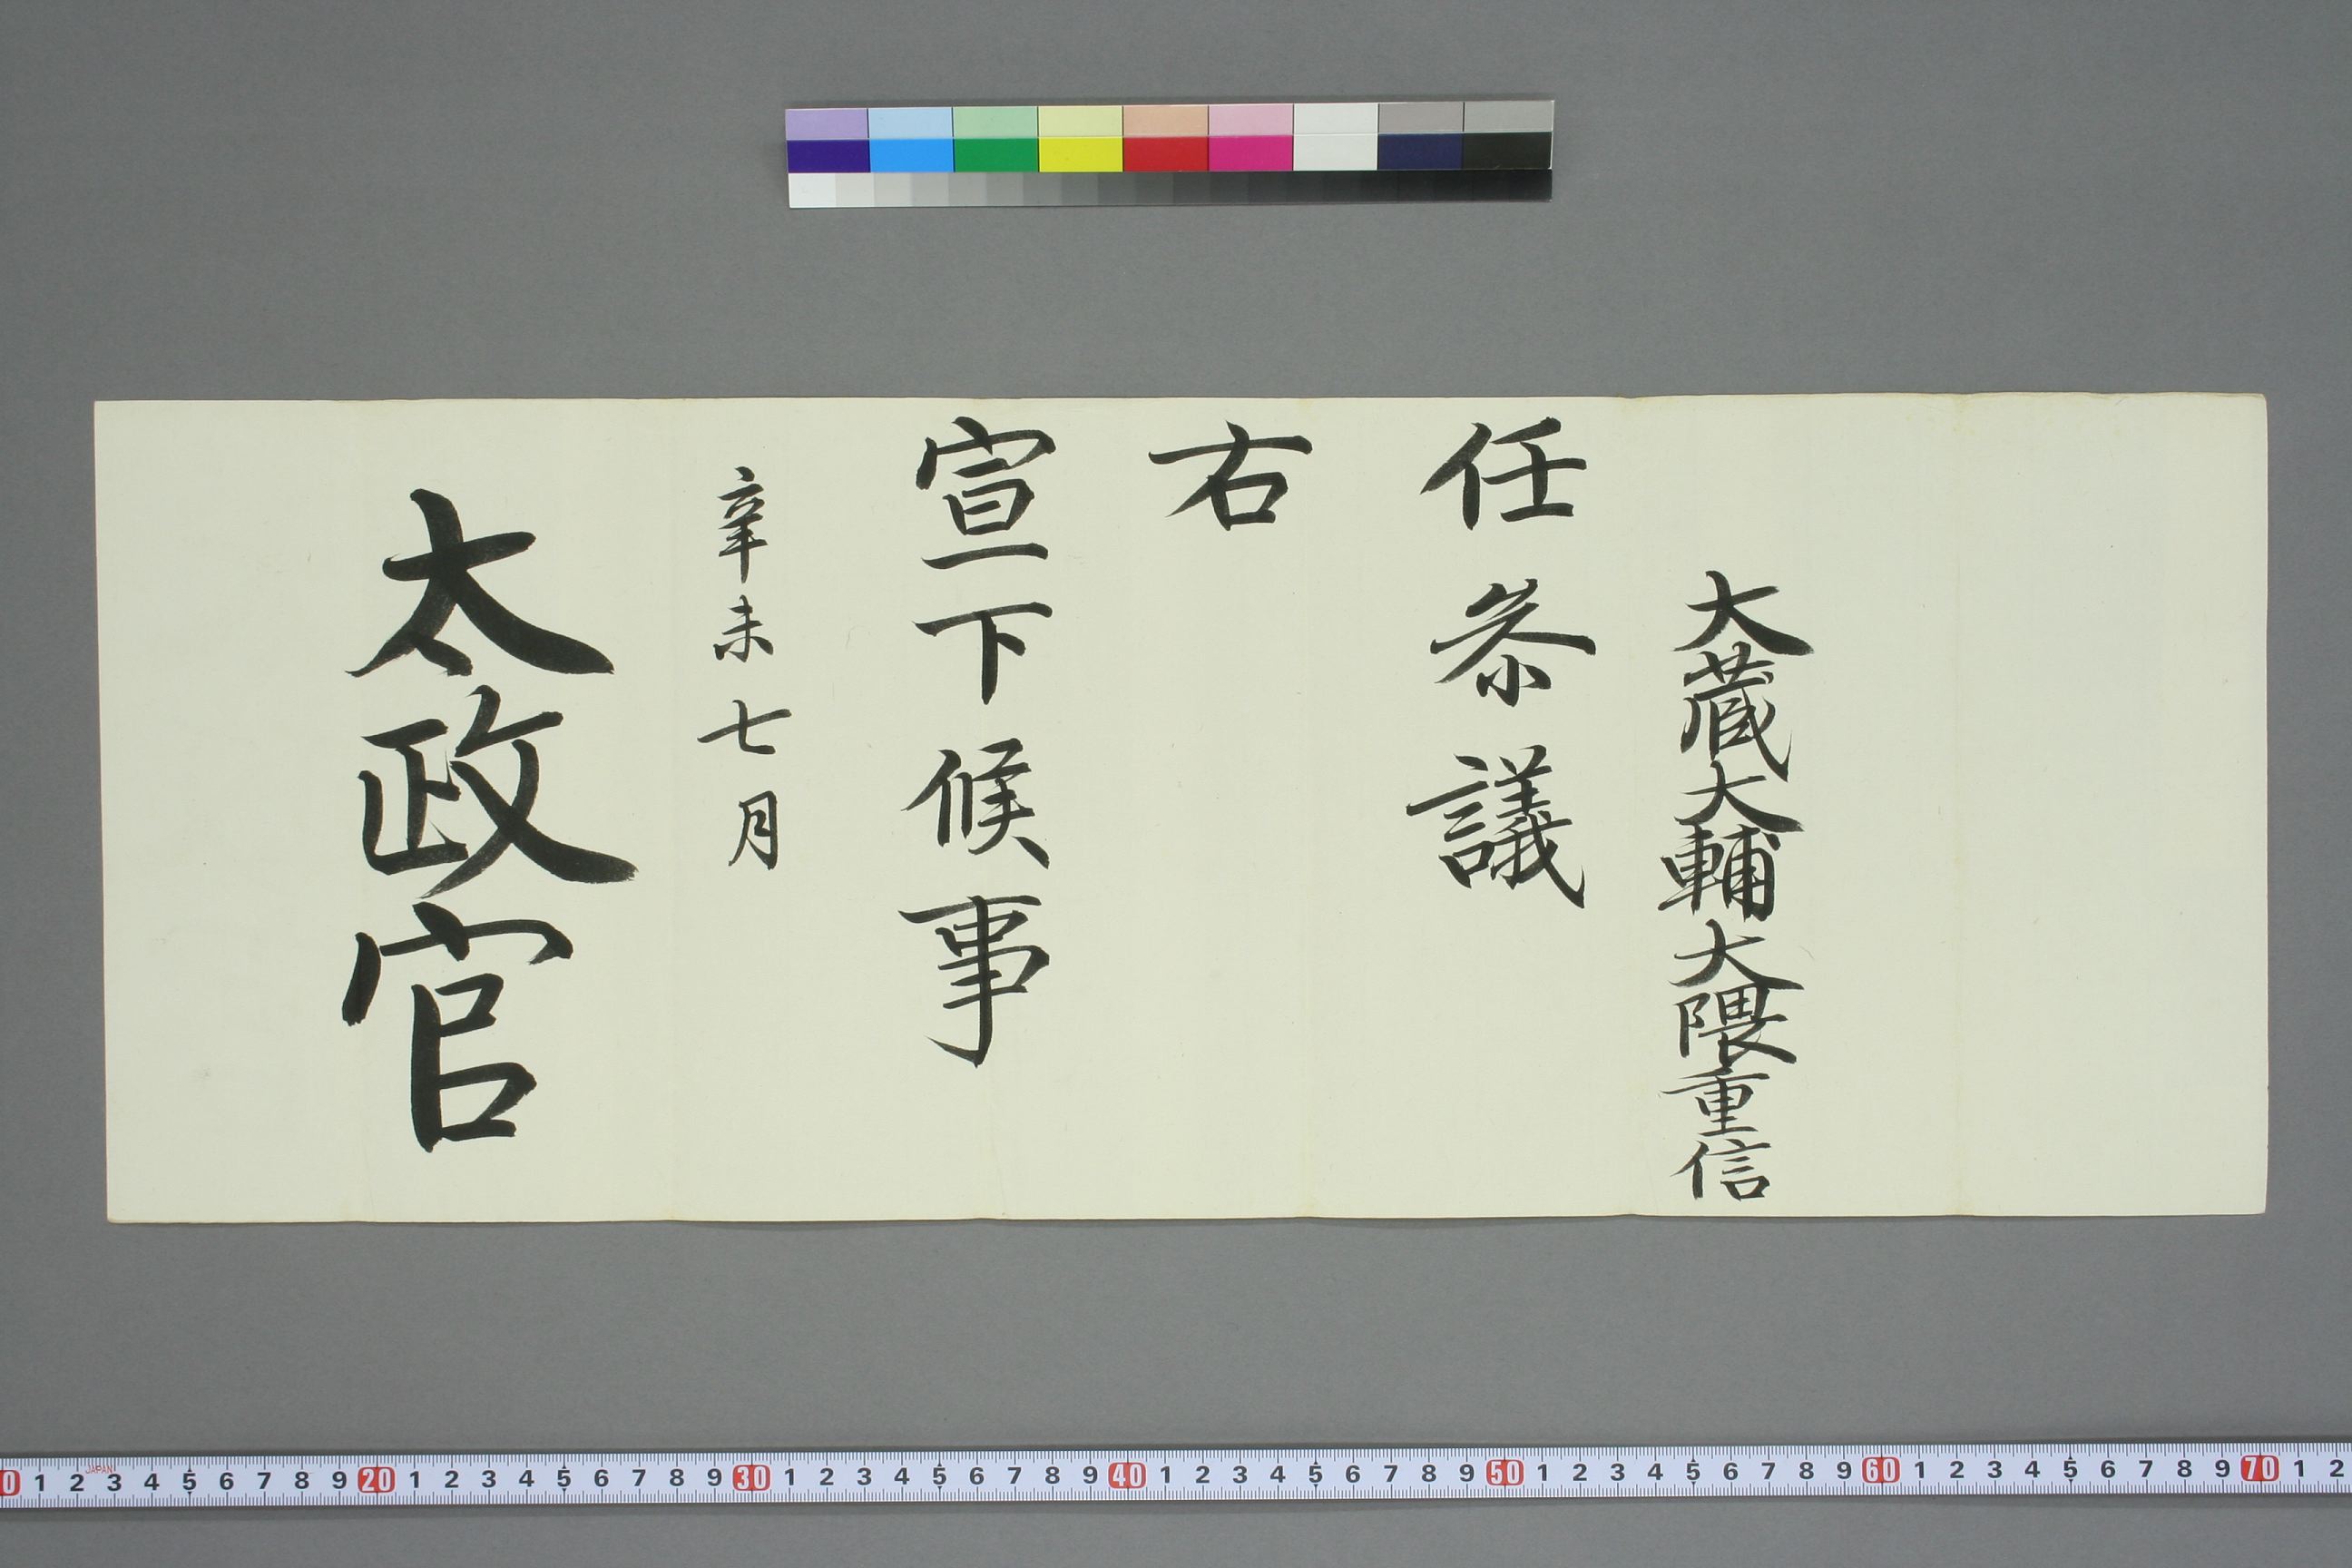 大蔵大輔大隈重信
任参議
右
宣下候事
辛未七月
太政官
0 1 2 3 4 5 6 7 8 9 20 1 2 3 4 5 6 7 8 9 30 1 2 3 4 5 6 7 8 9 40 1 2 3 4 5 6 7 8 9 50 1 2 3 4 5 6 7 8 9 60 1 2 3 4 5 6 7 8 9 70 1 2
JAPAN